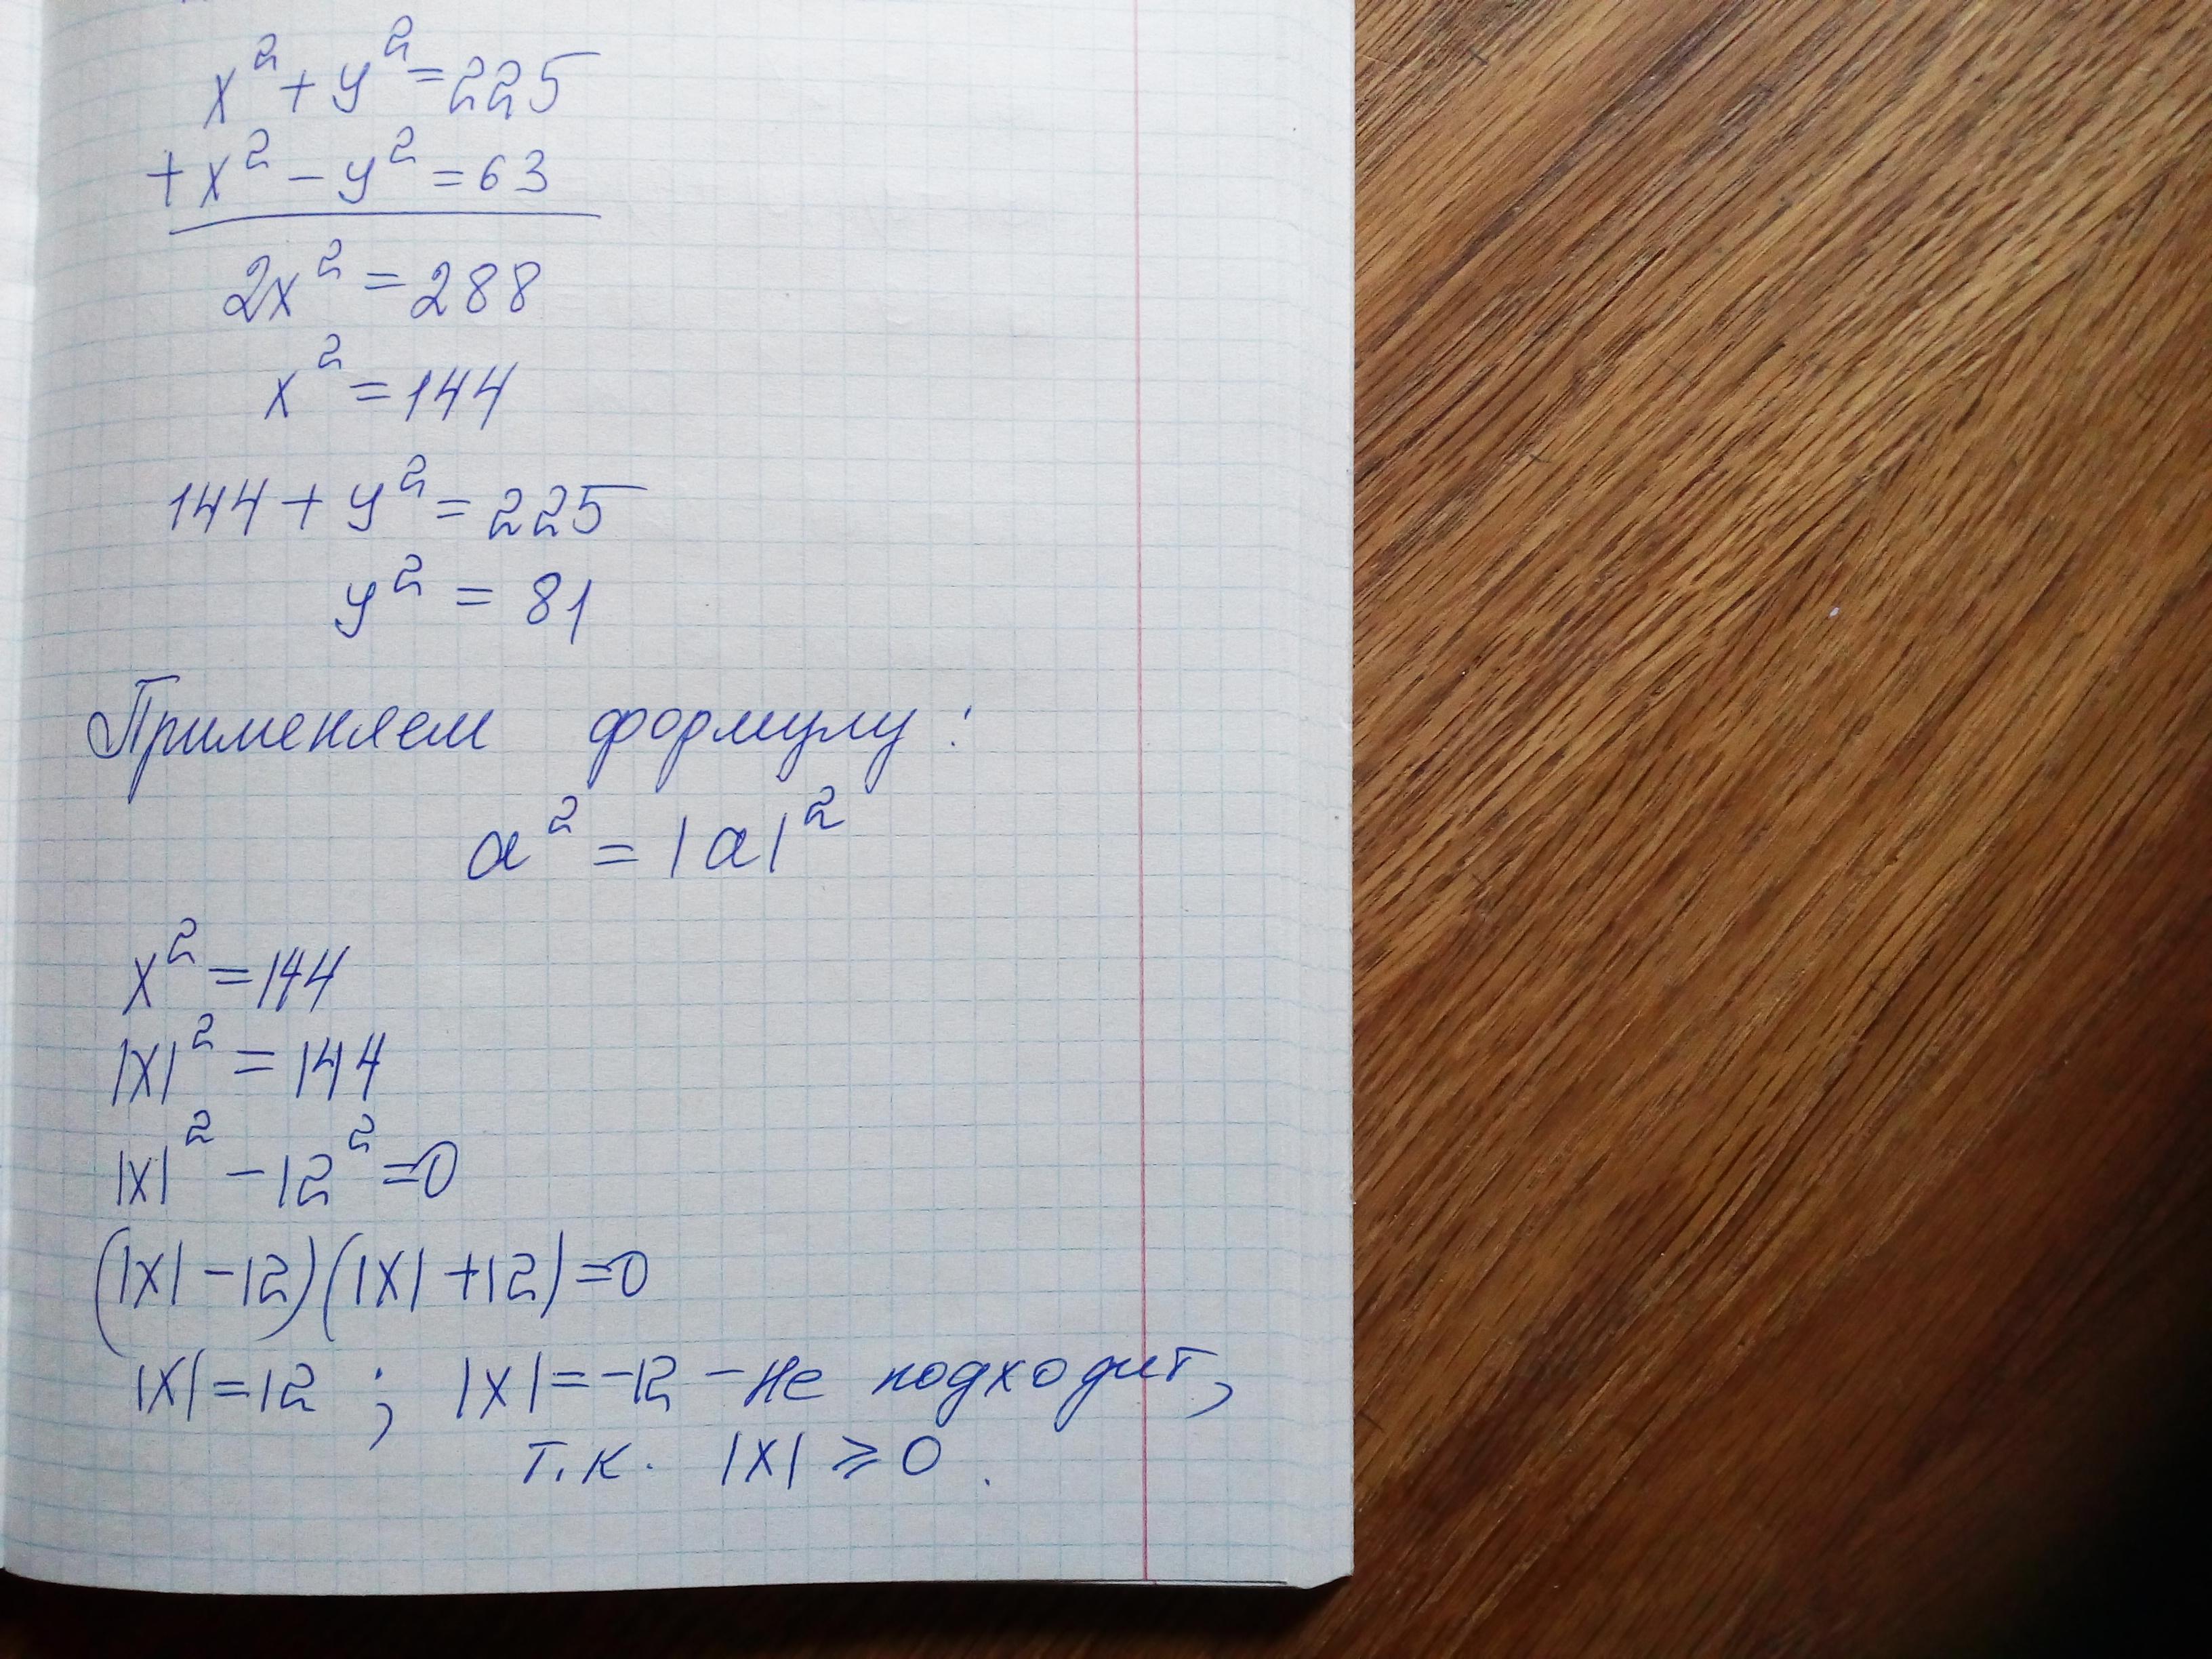 x² + y² = 225
+ x² - y² = 63
2x² = 288
x² = 144
144 + y² = 225
y² = 81
Применяем формулу:
a² = |a|²
x² = 144
|x|² = 144
|x|² - 12² = 0
(|x| - 12)(|x| + 12) = 0
|x| = 12 ; |x| = -12 - не подходит,
т.к. |x| ⩾ 0.